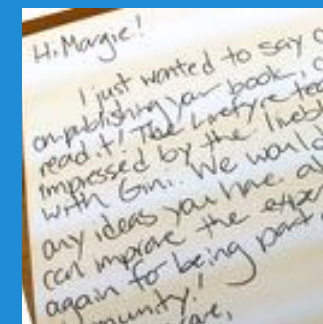 Hi Margie!
I just wanted to say
on publishing your book,
read it! The Livefyre
impressed by the
with Gini. We would
any ideas you have
can improve the
again for being part